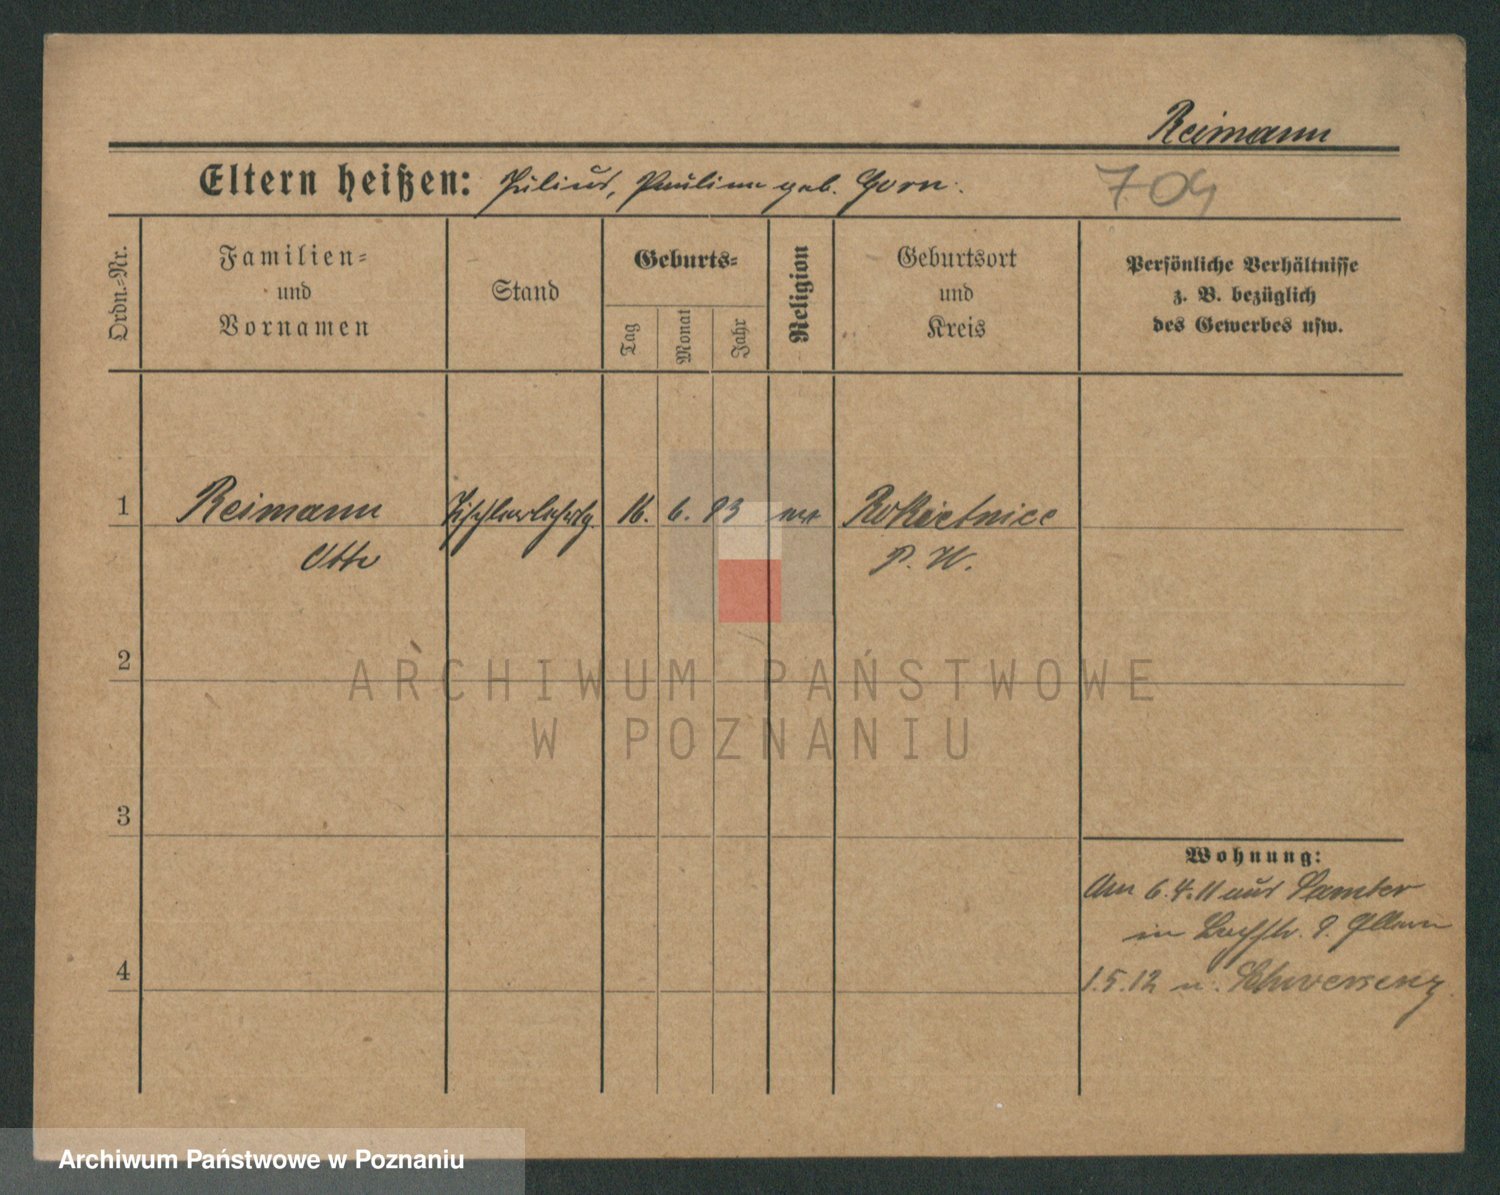 Reimann
Eltern heißen: Julius, Pauline geb. Gorn.
704
Ordn.=Nr.
Familien=
und
Vornamen
Stand
Geburts=
Tag
Monat
Jahr
Religion
Geburtsort
und
Kreis
Persönliche Verhältnisse
z. B. bezüglich
des Gewerbes usw.
1 Reimann 16. 6. 93 Rokietnice
Otto P. W.
2
3
4
Wohnung:
Am 6.4.11 aus Samter
in
1.5.12 n. Schwersenz
ARCHIWUM PAŃSTWOWE
W POZNANIU
Archiwum Państwowe w Poznaniu